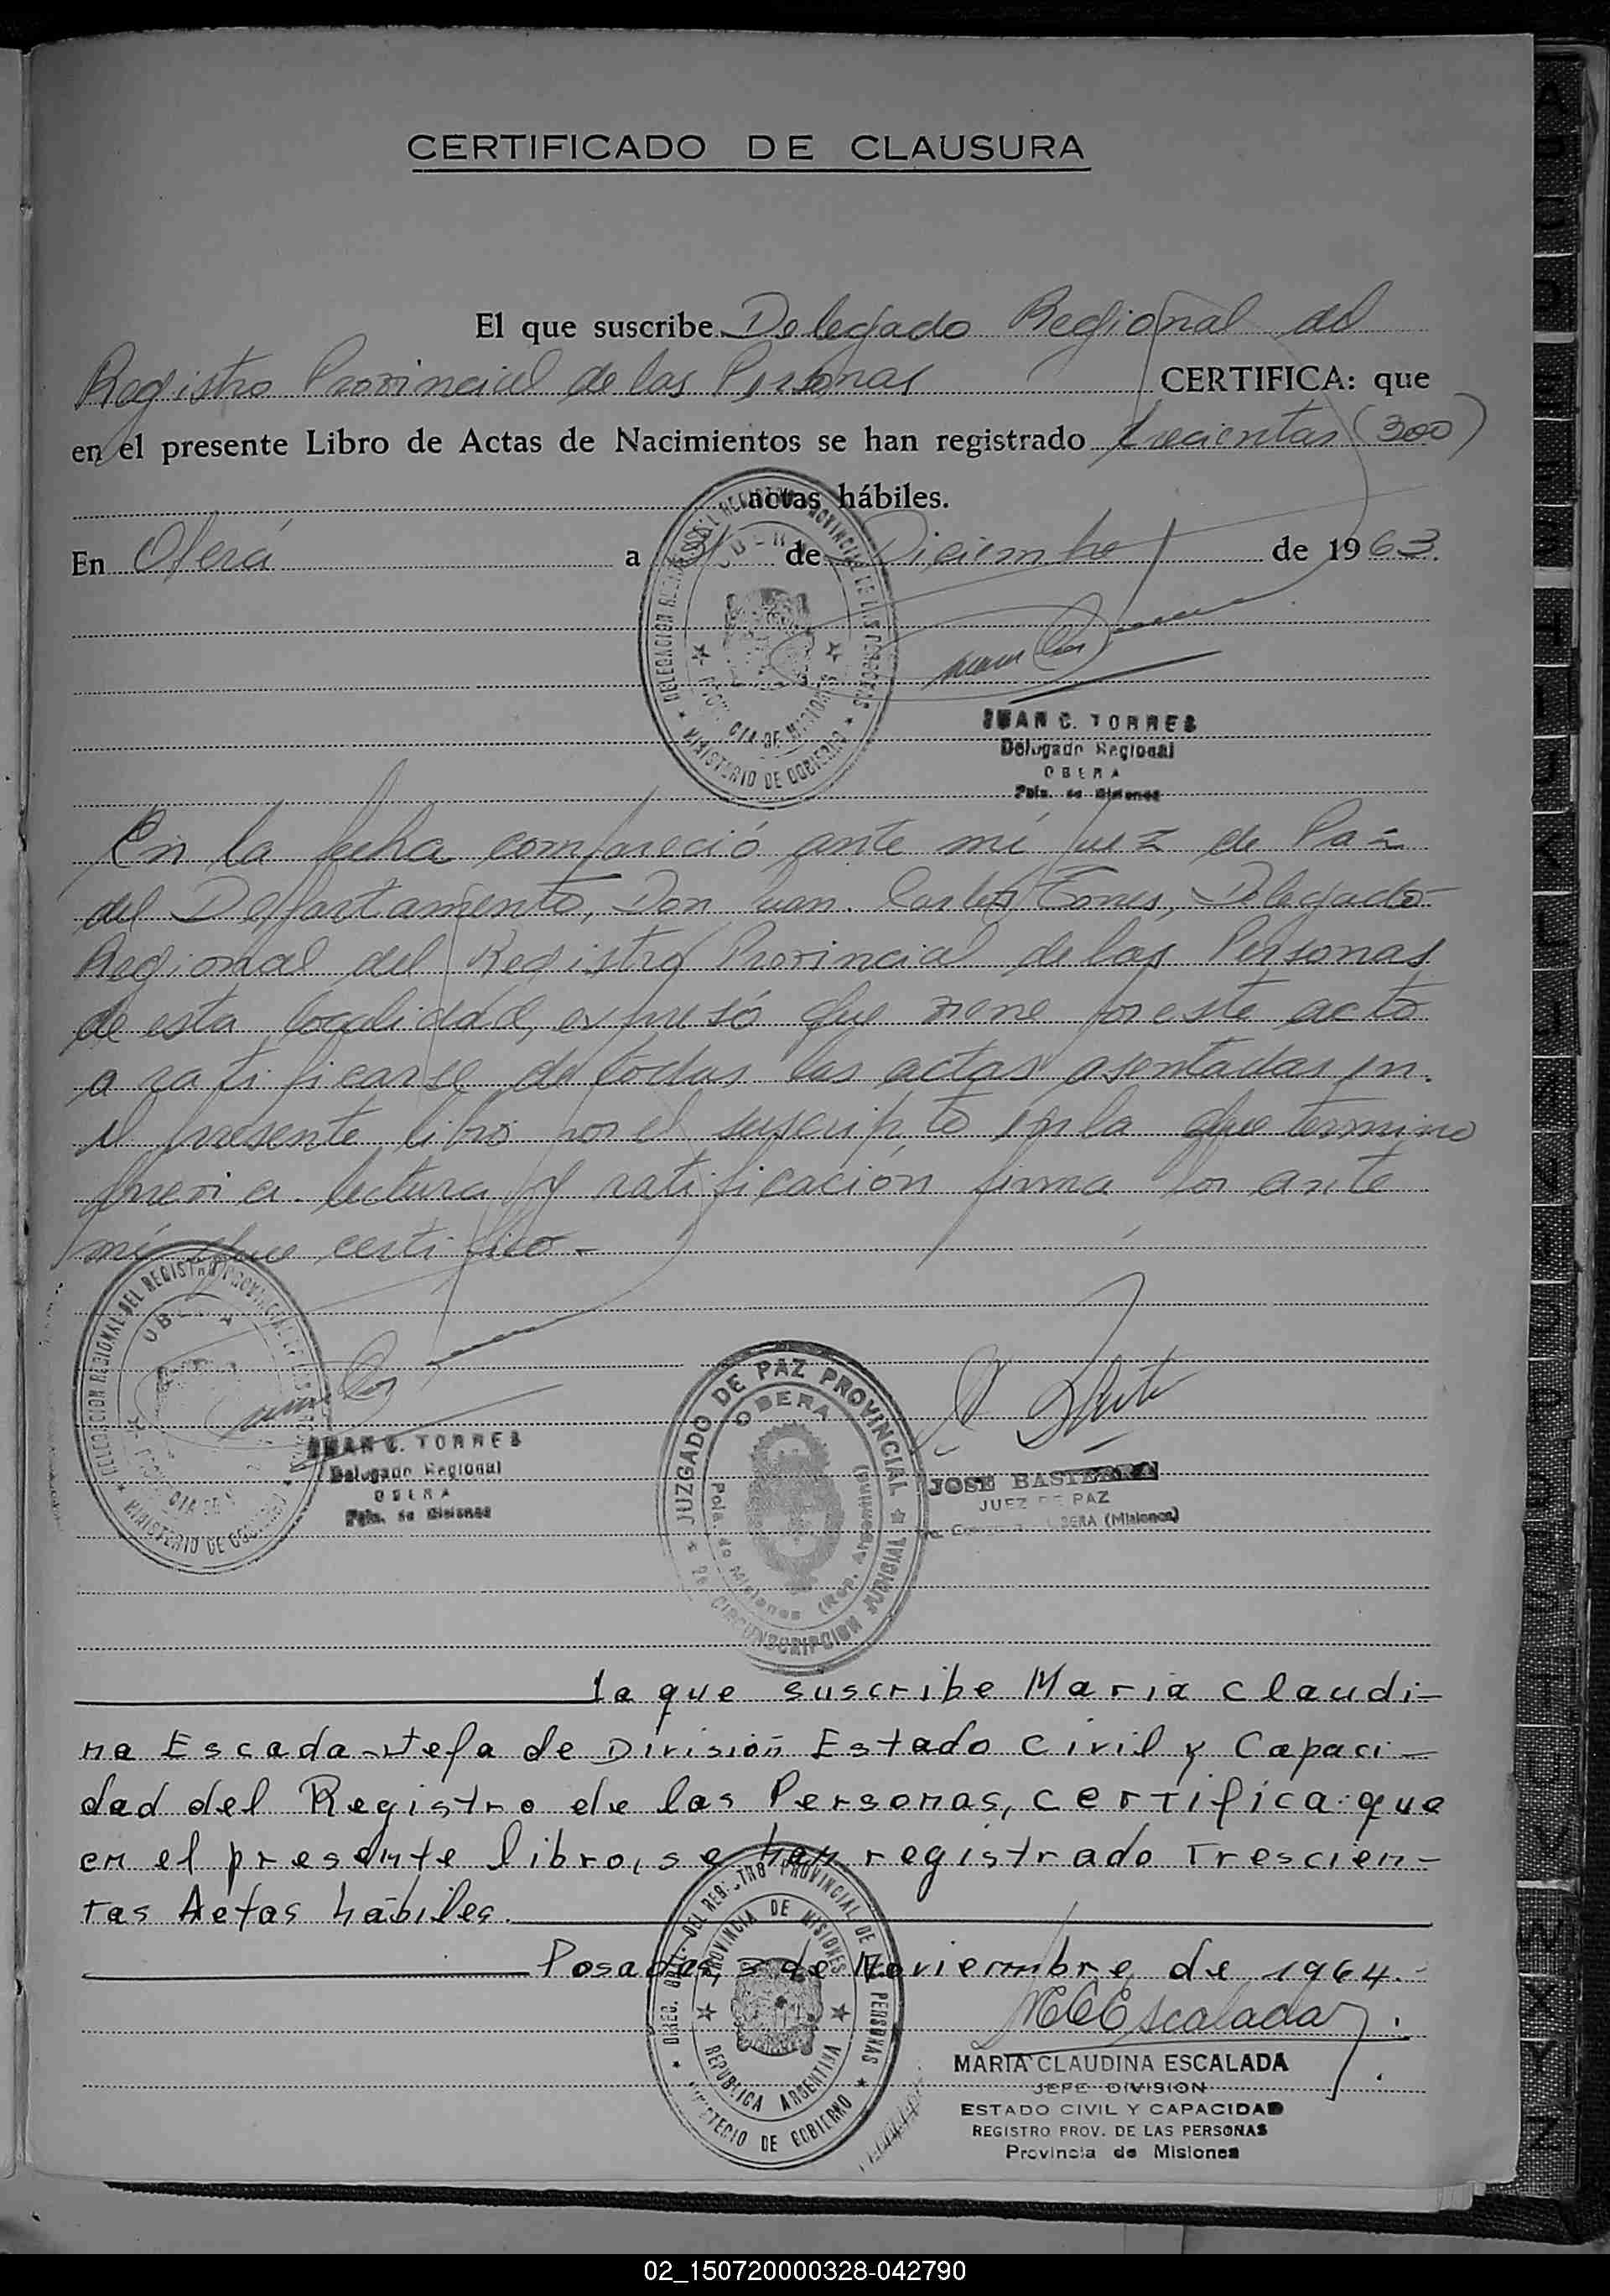 CERTIFICADO DE CLAUSURA
El que suscribe Delegado Regional del
Registro Provincial de las Personas CERTIFICA: que
en el presente Libro de Actas de Nacimientos se han registrado trecientas (300)
actas hábiles.
En Oberá a 31 de Diciembre de 1963.
DELEGACION REGIONAL DEL REGISTRO PROVINCIAL DE LAS PERSONAS
OBERA
PROVINCIA DE MISIONES
MINISTERIO DE GOBIERNO
JUAN C. TORRES
Delegado Regional
OBERA
Pcia. de Misiones
En la fecha compareció ante mi Juez de Paz
del Departamento, Don Juan Carlos Torres, Delegado
Regional del Registro Provincial de las Personas
de esta localidad, expresó que viene por este acto
a ratificarse de todas las actas asentadas en
el presente libro por el suscripto en la que termino
previa lectura y ratificación firma por ante
mí que certifico.-
DELEGACION REGIONAL DEL REGISTRO PROVINCIAL DE LAS PERSONAS
MINISTERIO DE GOBIERNO
JUAN C. TORRES
Delegado Regional
OBERA
Pcia. de Misiones
JUZGADO DE PAZ PROVINCIAL
OBERA
Pcia. de Misiones (Rep. Argentina)
2a. CIRCUNSCRIPCION JUDICIAL
JOSE BASTERRA
JUEZ DE PAZ
OBERA (Misiones)
La que suscribe Maria Claudi-
na Escada-Jefa de División Estado Civil y Capaci-
dad del Registro de las Personas, certifica: que
en el presente libro, se han registrado Trescien-
tas Actas hábiles.
Posadas, de Noviembre de 1964.-
DIREC. GRAL. DEL REGISTRO PROVINCIAL DE PERSONAS
PROVINCIA DE MISIONES
REPUBLICA ARGENTINA
MINISTERIO DE GOBIERNO
MCEscalada
MARIA CLAUDINA ESCALADA
JEFE DIVISION
ESTADO CIVIL Y CAPACIDAD
REGISTRO PROV. DE LAS PERSONAS
Provincia de Misiones
02_150720000328-042790